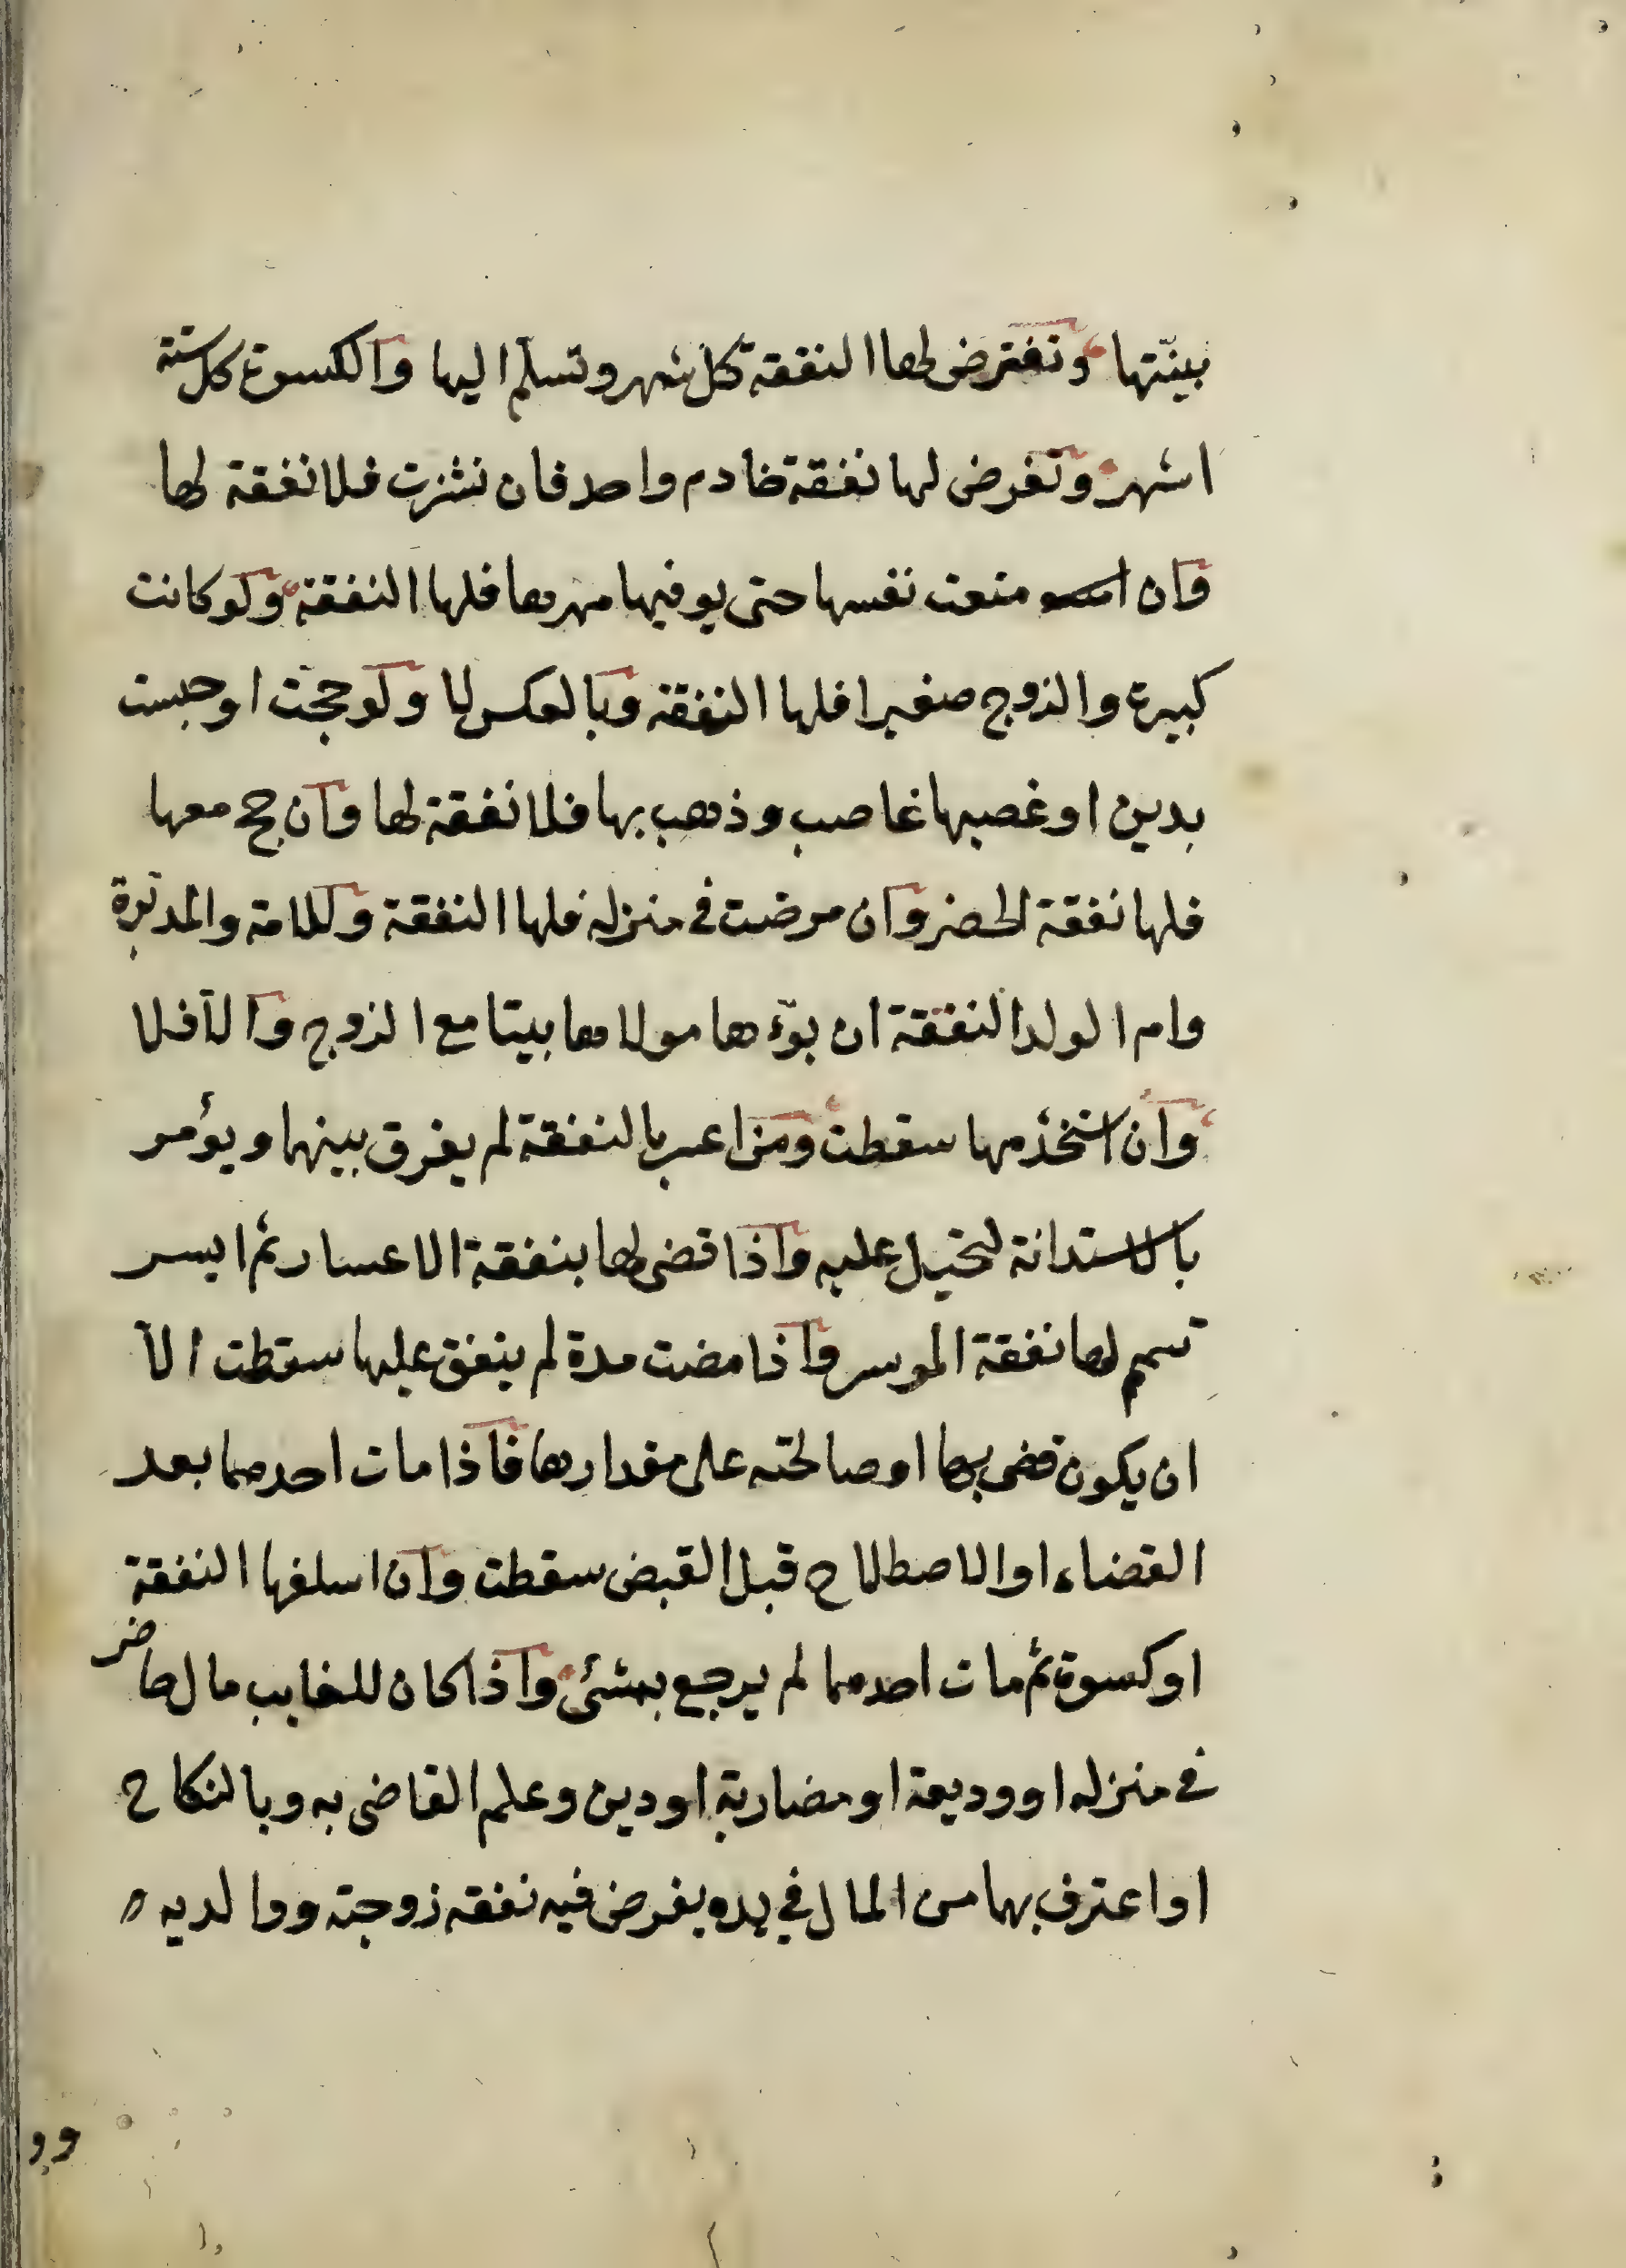 بينتها وتفترض لها النفقة كل شهر وتسلّم اليها والكسوة كل ستة
اشهر وتفرض لها نفقة خادم واحد فان نشزت فلا نفقة لها
وان منعت نفسها حتى يوفيها مهرها فلها النفقة ولو كانت
كبيرة والزوج صغيرا فلها النفقة وبالعكس لا ولو حجت او حبست
بدين او غصبها غاصب وذهب بها فلا نفقة لها وان حج معها
فلها نفقة الحضر وان مرضت في منزله فلها النفقة وللامة والمدبّرة
وام الولد النفقة ان بوّءها مولاها بيتا مع الزوج والّا فلا
وان استخدمها سقطت ومن اعسر بالنفقة لم يفرق بينهما ويؤمر
بالاستدانة لتحيل عليه واذا قضى لها بنفقة الاعسار ثم ايسر
تمم لها نفقة الموسر واذا مضت مدة لم ينفق عليها سقطت الّا
ان يكون قضى بها او صالحته على مقدارها فاذا مات احدهما بعد
القضاء او الاصطلاح قبل القبض سقطت وان اسلفها النفقة
او كسوة ثم مات احدهما لم يرجع بشئ واذا كان للغايب مال حاضر
في منزله او وديعة او مضاربة او دين وعلم القاضى به وبالنكاح
او اعترف بهما من المال في يده يفرض فيه نفقة زوجته ووالديه